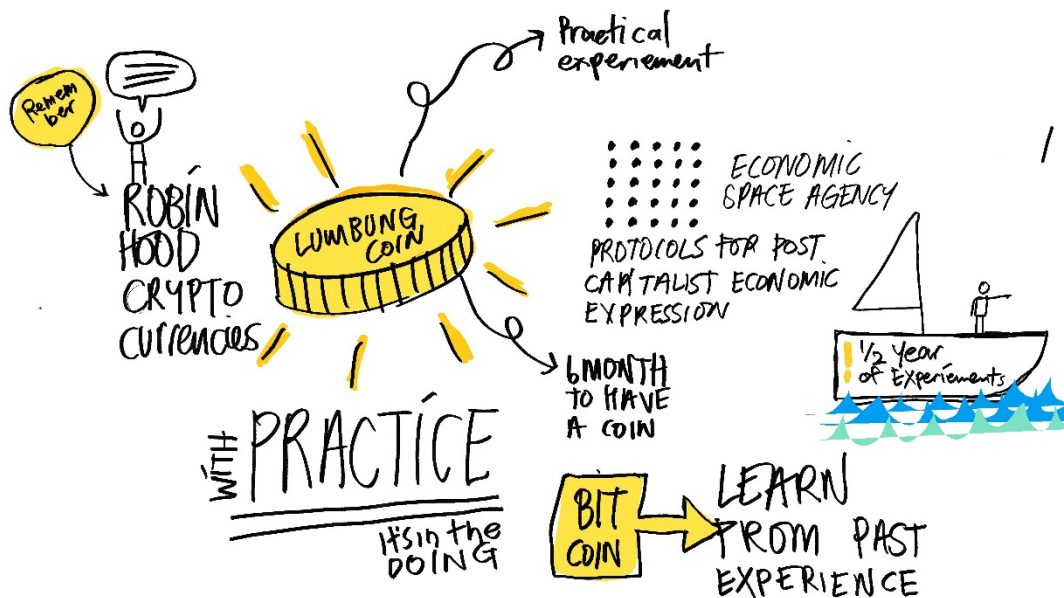 Remem
ber
ROBIN
HOOD
CRYPTO
CURRENCIES
LUMBUNG
COIN
Practical
experiement
ECONOMIC
SPACE AGENCY
PROTOCOLS FOR POST
CAPITALIST ECONOMIC
EXPRESSION
6 MONTH
TO HAVE
A COIN
1/2 Year
of Experiements
WITH
PRACTICE
It's in the
DOING
BIT
COIN
LEARN
FROM PAST
EXPERIENCE